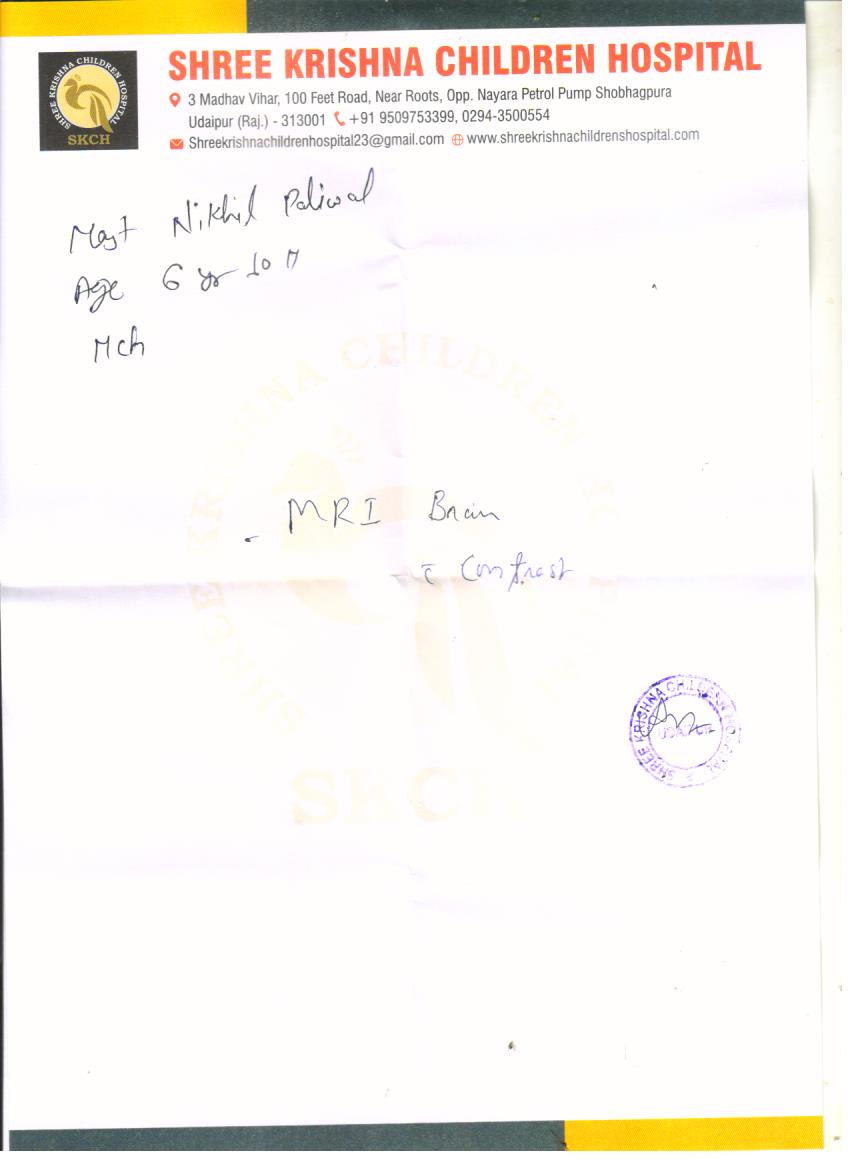 SHREE KRISHNA CHILDREN HOSPITAL
SHREE KRISHNA CHILDREN HOSPITAL
SKCH
3 Madhav Vihar, 100 Feet Road, Near Roots, Opp. Nayara Petrol Pump Shobhagpura
Udaipur (Raj.) - 313001 +91 9509753399, 0294-3500554
Shreekrishnachildrenhospital23@gmail.com www.shreekrishnachildrenshospital.com
Mast Nikhil Paliwal
Age 6 yr 10 M
Mch
SHREE KRISHNA CHILDREN HOSPITAL
- MRI Brain
c̄ Contrast
SHREE KRISHNA CHILDREN HOSPITAL
UDAIPUR
SKCH